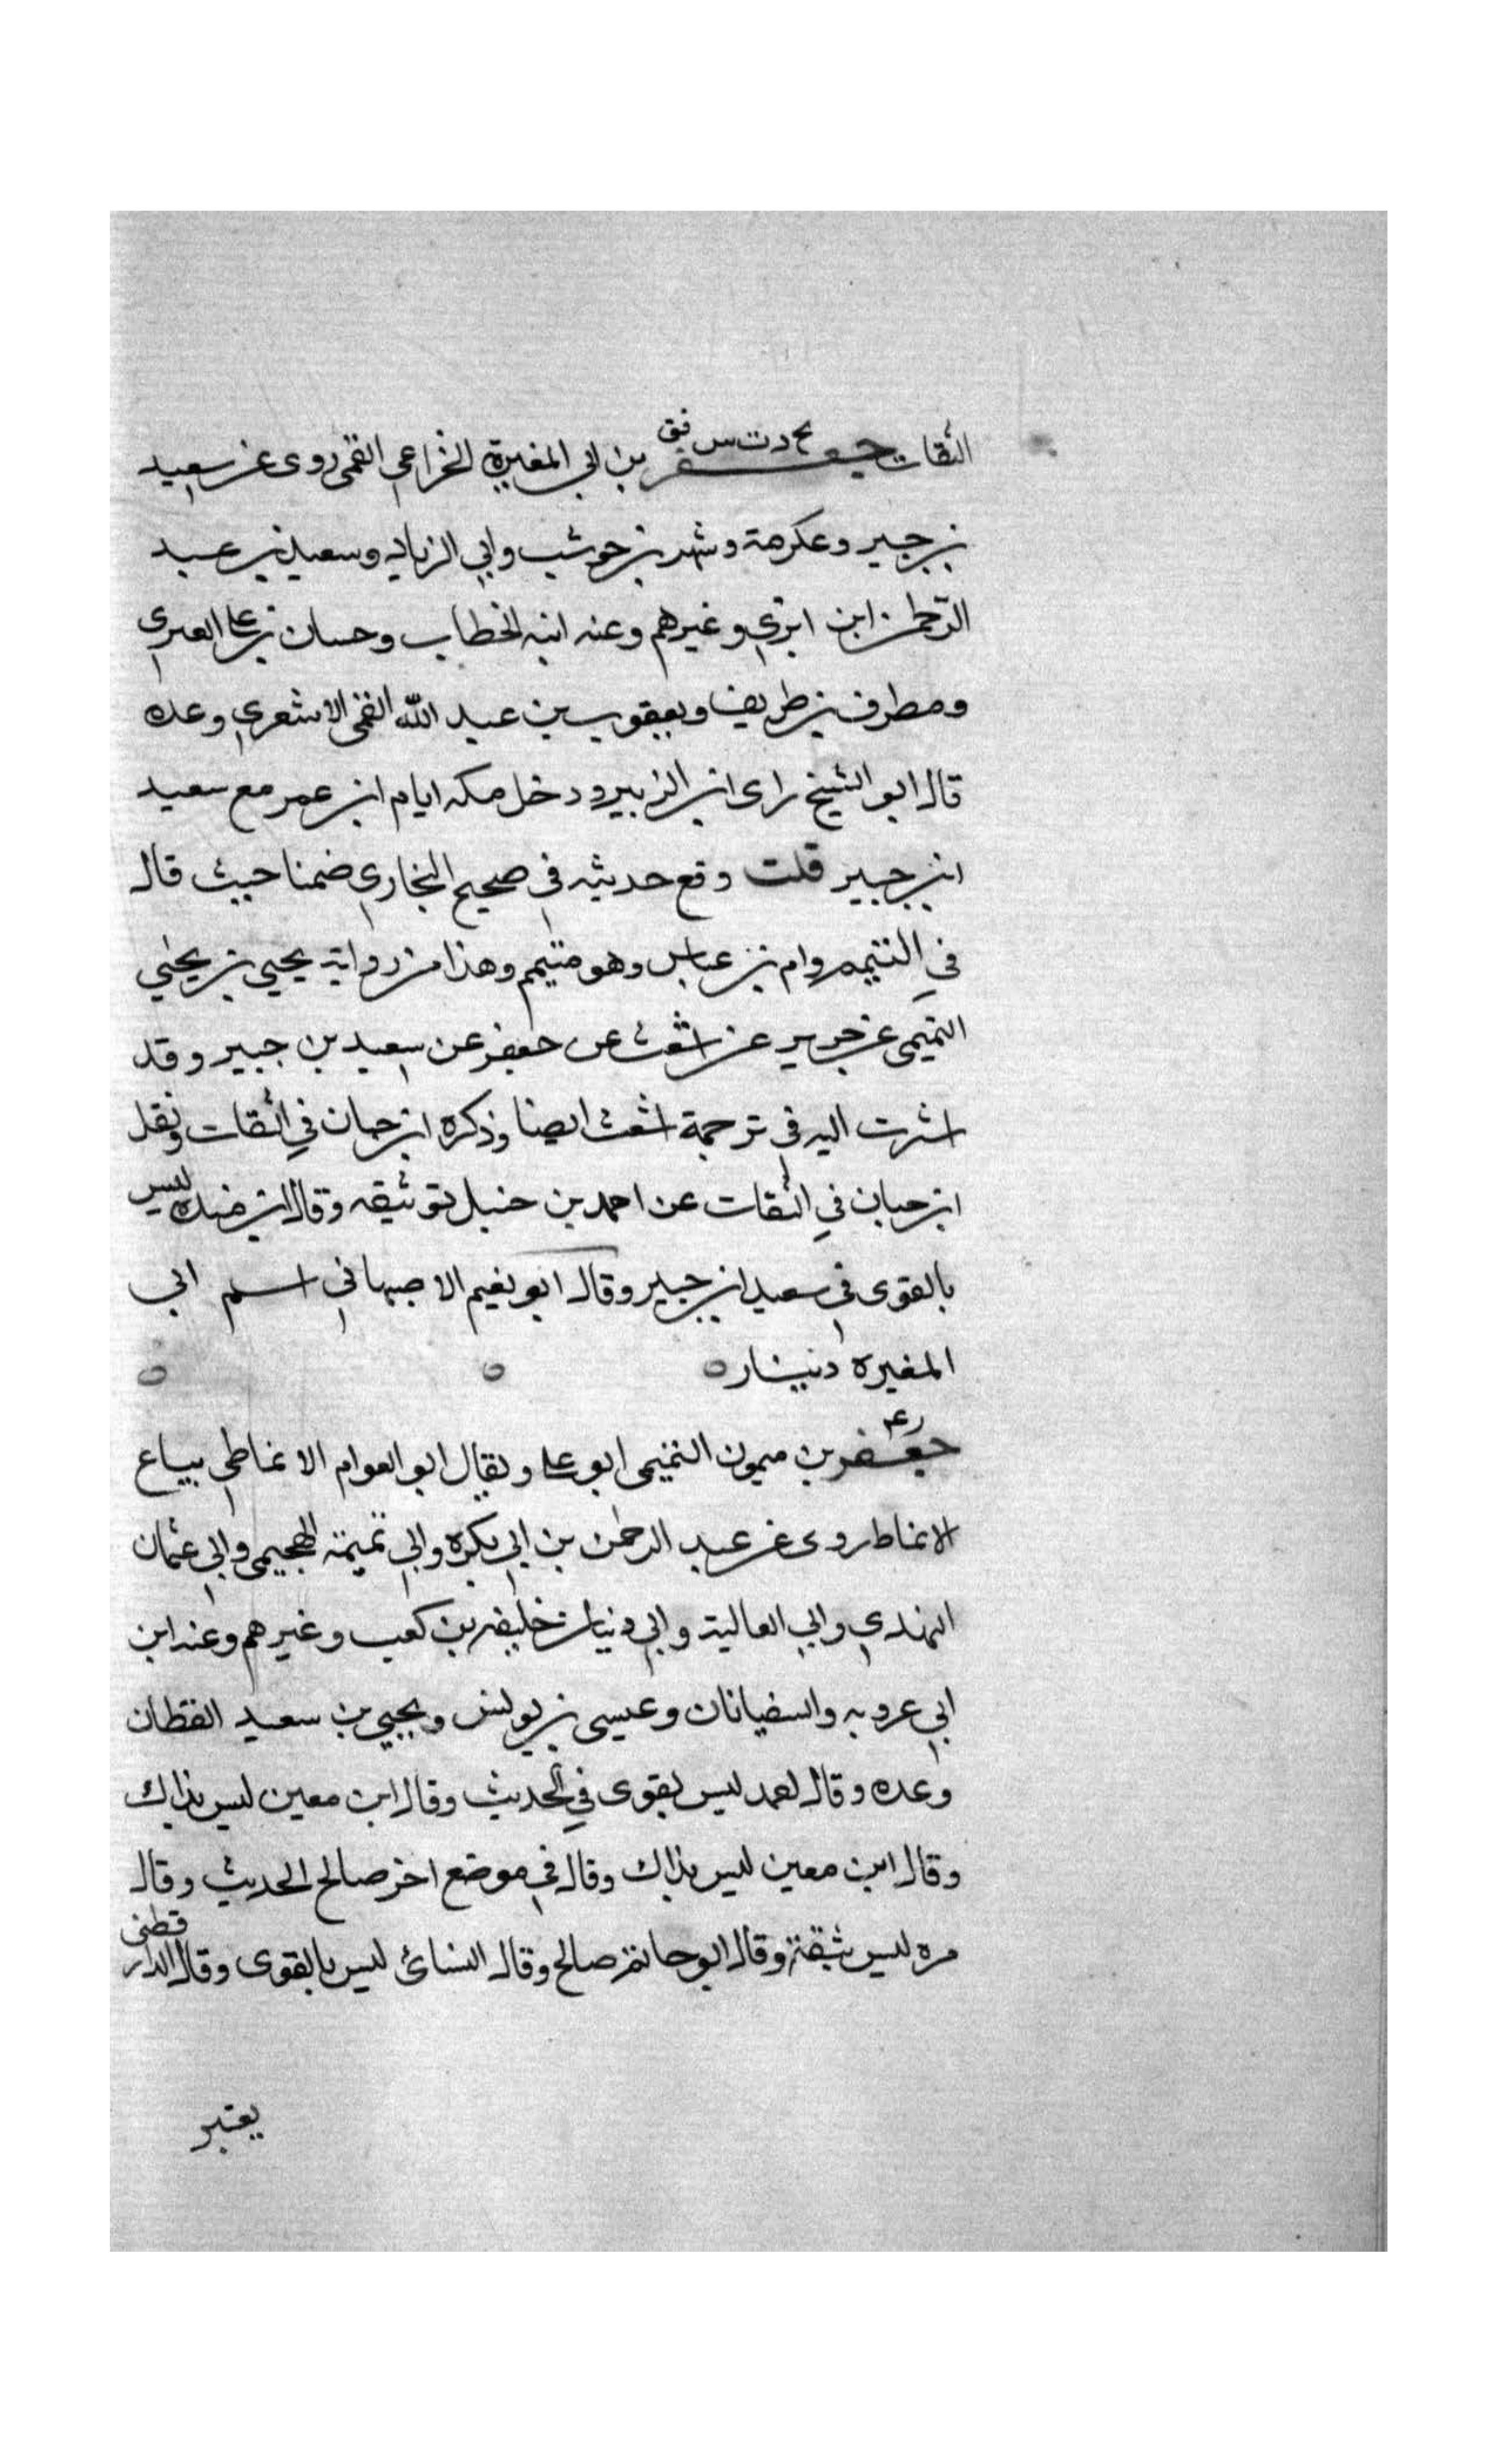 الثقات جعفر بخ د ت س فق بن ابي المغيرة الخزاعي القمي روى عن سعيد
بن جبير وعكرمة وشهر بن حوشب وابي الزناد وسعيد بن عبد
الرحمن ابن ابزي وغيرهم وعنه ابنه الخطاب وحسان بن علي العنزي
ومطرف بن طريف ويعقوب بن عبد الله القمي الاشعري وعده
قال ابو الشيخ راى ابن الزبير ودخل مكه ايام ابن عمر مع سعيد
ابن جبير قلت وقع حديثه في صحيح البخاري ضمنا حيث قال
في التيمم وام بن عباس وهو متيمم وهذا من رواية يحيى بن يحيى
التميمي عن جرير عن اشعث عن جعفر عن سعيد بن جبير وقد
اشرت اليه في ترجمة اشعث ايضا وذكره ابن حبان في الثقات ونقل
ابن حبان في الثقات عن احمد بن حنبل توثيقه وقال ابن منده ليس
بالقوى في سعيد ابن جبير وقال ابو نعيم الاصبهاني اسم ابي
المغيره دينار
جعفر ر ع بن ميمون التميمي ابو علي ويقال ابو العوام الانماطي بياع
الانماط روى عن عبد الرحمن بن ابي بكره وابي تميمة الهجيمي وابي عثمان
النهدي وابي العالية وابي ذبيان خليفه بن كعب وغيرهم وعنه ابن
ابي عروبه والسفيانان وعيسى بن يونس ويحيي بن سعيد القطان
وعده وقال احمد ليس بقوى في الحديث وقال ابن معين ليس بذاك
وقال ابن معين ليس بذاك وقال في موضع اخر صالح الحديث وقال
مره ليس بثقة وقال ابو حاتم صالح وقال النسائ ليس بالقوى وقال الدارقطني
يعتبر